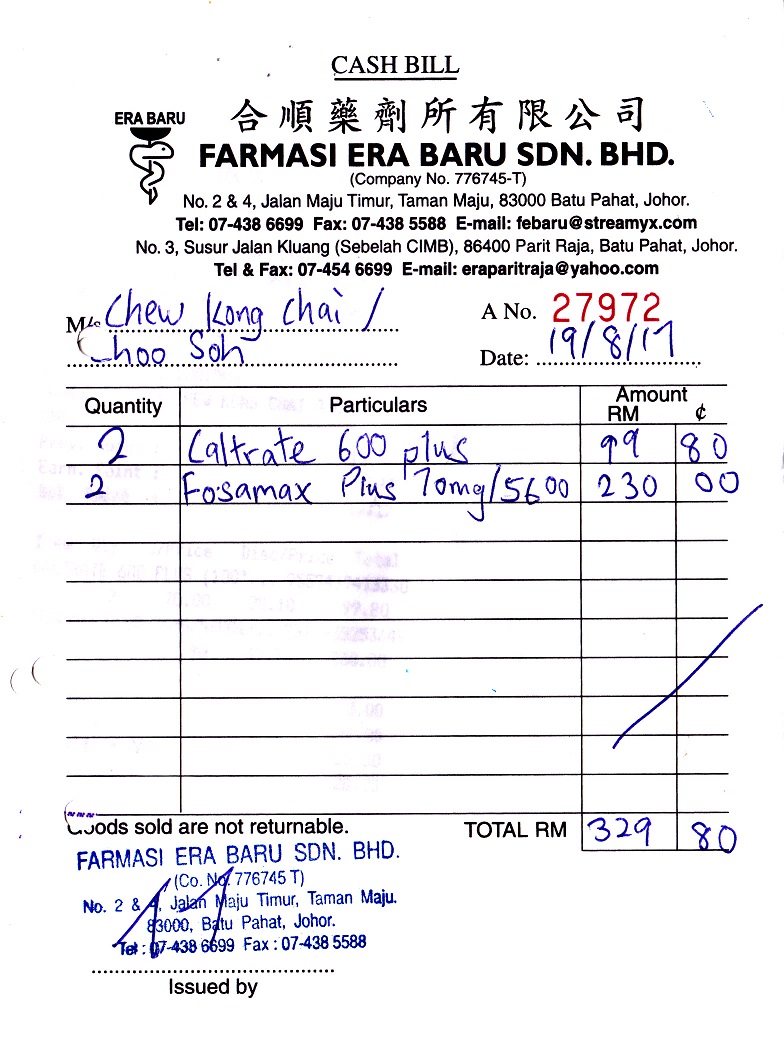 CASH BILL
ERA BARU
合順藥劑所有限公司
FARMASI ERA BARU SDN. BHD.
(Company No. 776745-T)
No. 2 & 4, Jalan Maju Timur, Taman Maju, 83000 Batu Pahat, Johor.
Tel: 07-438 6699 Fax: 07-438 5588 E-mail: febaru@streamyx.com
No. 3, Susur Jalan Kluang (Sebelah CIMB), 86400 Parit Raja, Batu Pahat, Johor.
Tel & Fax: 07-454 6699 E-mail: eraparitraja@yahoo.com
M/s Chew Kong Chai / A No. 27972
Choo Soh Date: 19/8/17
Quantity Particulars Amount
RM ¢
2 Caltrate 600 plus 99 80
2 Fosamax Plus 70mg/5600 230 00
Goods sold are not returnable. TOTAL RM 329 80
FARMASI ERA BARU SDN. BHD.
(Co. No. 776745 T)
No. 2 & 4, Jalan Maju Timur, Taman Maju.
83000, Batu Pahat, Johor.
Tel : 07-438 6699 Fax : 07-438 5588
Issued by